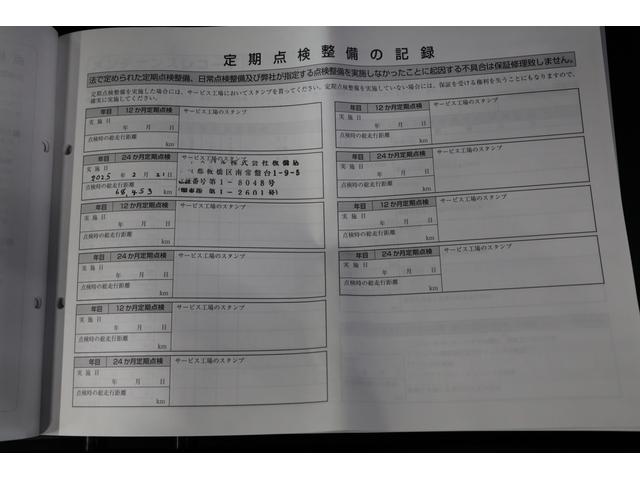 定期点検整備の記録
法で定められた定期点検整備、日常点検整備及び弊社が指定する点検整備を実施しなかったことに起因する不具合は保証修理致しません。
定期点検整備を実施した場合には、サービス工場においてスタンプを貰ってください。定期点検整備を実施していない場合には、保証を受ける権利を失うことにもなりますので、
確実に実施してください。
年目 12か月定期点検 サービス工場のスタンプ
実施日
年 月 日
点検時の総走行距離
km
年目 24か月定期点検 サービス工場のスタンプ
実施日
2025年 2月 21日
点検時の総走行距離
68,453 km
株式会社板橋
板橋区南常盤台1-9-5
番号第1-8048号
第1-2601号
年目 12か月定期点検 サービス工場のスタンプ
実施日
年 月 日
点検時の総走行距離
km
年目 24か月定期点検 サービス工場のスタンプ
実施日
年 月 日
点検時の総走行距離
km
年目 12か月定期点検 サービス工場のスタンプ
実施日
年 月 日
点検時の総走行距離
km
年目 24か月定期点検 サービス工場のスタンプ
実施日
年 月 日
点検時の総走行距離
km
年目 12か月定期点検 サービス工場のスタンプ
実施日
年 月 日
点検時の総走行距離
km
年目 24か月定期点検 サービス工場のスタンプ
実施日
年 月 日
点検時の総走行距離
km
年目 12か月定期点検 サービス工場のスタンプ
実施日
年 月 日
点検時の総走行距離
km
年目 24か月定期点検 サービス工場のスタンプ
実施日
年 月 日
点検時の総走行距離
km